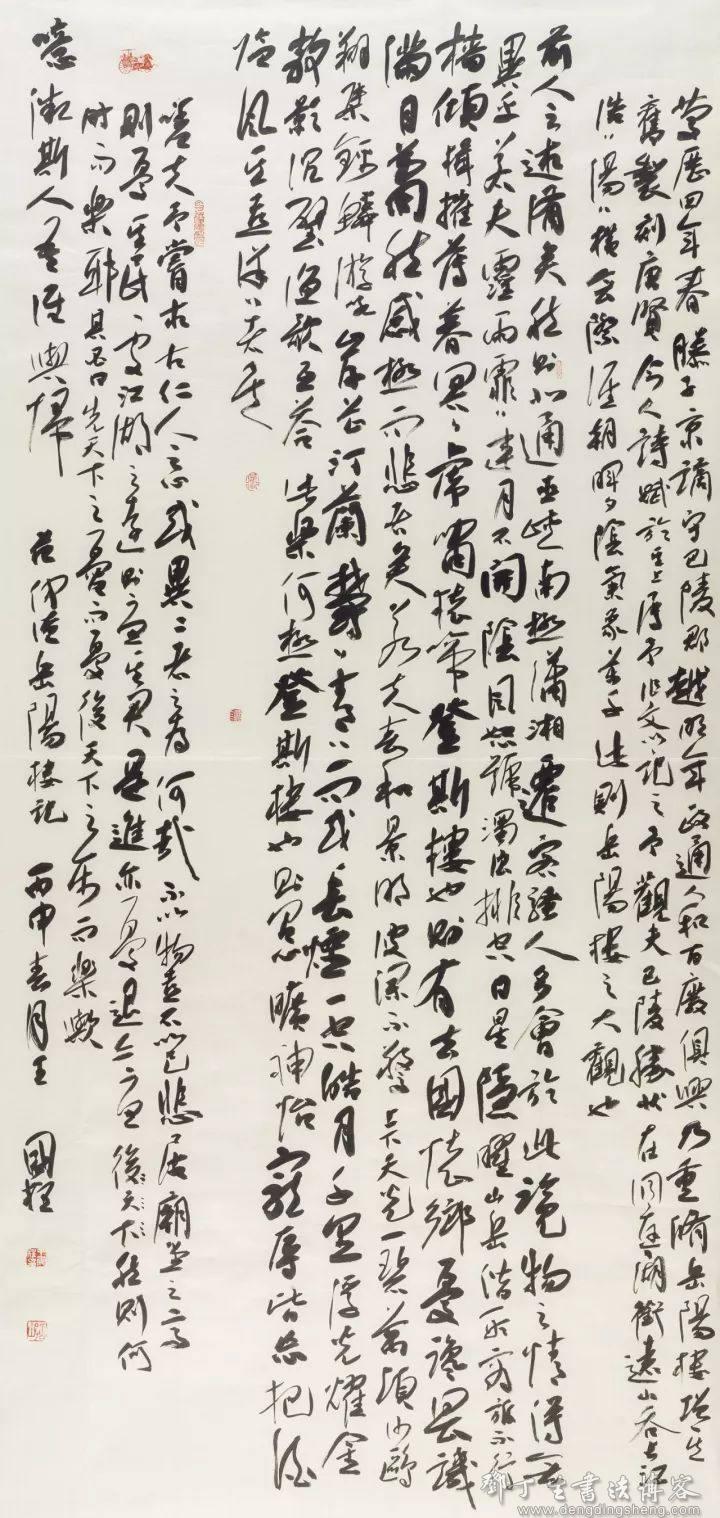 慶曆四年春滕子京謫守巴陵郡越明年政通人和百廢俱興乃重脩岳陽樓增其
舊製刻唐賢今人詩賦於其上屬予作文以記之予觀夫巴陵勝狀在洞庭湖銜遠山吞長江
浩〻湯〻橫無際涯朝暉夕陰氣象萬千此則岳陽樓之大觀也
前人之述備矣然則北通巫峽南極瀟湘遷客騷人多會於此覽物之情得無
異乎若夫霪雨霏〻連月不開陰風怒號濁浪排空日星隱曜山岳潛形商旅不行
檣傾楫摧薄暮冥〻虎嘯猿啼登斯樓也則有去國懷鄉憂讒畏譏
滿目蕭然感極而悲者矣若夫春和景明波瀾不驚上下天光一碧萬頃沙鷗
翔集錦鱗游泳岸芷汀蘭鬱〻青〻而或長煙一空皓月千里浮光耀金
靜影沉璧漁歌互答此樂何極登斯樓也則心曠神怡寵辱皆忘把酒
臨風其喜洋〻者矣
嗟夫予嘗求古仁人之心或異二者之為何哉不以物喜不以己悲居廟堂之高
則憂其民處江湖之遠則憂其君是進亦憂退亦憂後天下然則何
時而樂耶其必曰先天下之憂而憂後天下之樂而樂歟
噫微斯人吾誰與歸 范仲淹岳陽樓記 丙申春月王國
鄧丁生書法博客
www.dengdingsheng.com